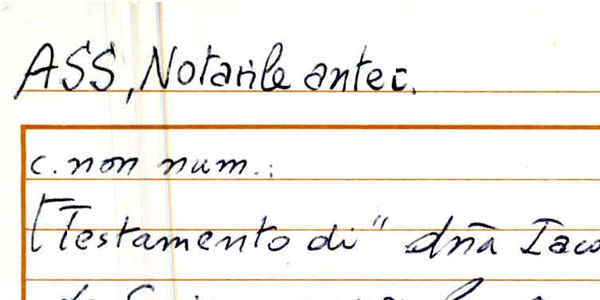 ASS, Notarile antec.
c. non num.:
[Testamento di" dnā Iaco